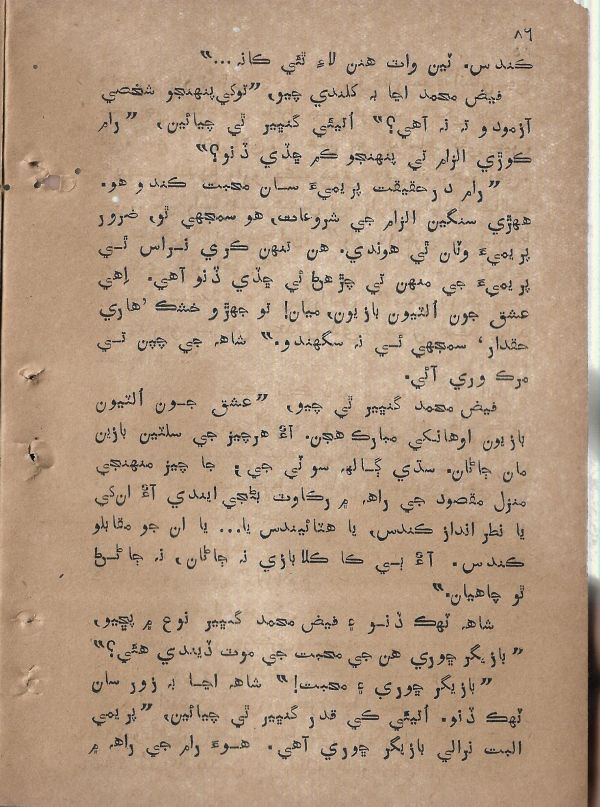 ٨٦
ڪندس. ٽين واٽ هنن لاءِ ٿئي ڪانہ..."
فيض محمد اڃا بہ کلندي چيو، "توکي پنهنجو شخصي
آزمودو تہ نہ آهي؟" اُتيئي گنڀير ٿي چيائين، "رام
ڪوڙي الزام تي پنهنجو ڪم ڇڏي ڏنو؟"
"رام درحقيقت پريميءَ سان محبت ڪندو هو.
ههڙي سنگين الزام جي شروعات، هو سمجهي ٿو، ضرور
پريميءَ وٽان ٿي هوندي. هن تنهن ڪري نراس ٿي
پريميءَ جي منهن تي چڙهڻ ئي ڇڏي ڏنو آهي. اِهي
عشق جون اُلٽيون بازيون، ميان! تو جهڙو خشڪ 'هاري
حقدار' سمجهي ئي نہ سگهندو." شاهہ جي چپن تي
مرڪ وري آئي.
فيض محمد گنڀير ٿي چيو، "عشق جون اُلٽيون
بازيون اوهانکي مبارڪ هجن. آءٌ هرچيز جي سلٽين بازين
مان ڄاڻان. سڌي ڳالهہ سوٽي جي؛ جا چيز منهنجي
منزل مقصود جي راهہ ۾ رڪاوٽ بڻجي ايندي آءٌ ان کي
يا نظر انداز ڪندس، يا هٽائيندس يا... يا ان جو مقابلو
ڪندس. آءٌ ٻي ڪا ڪلابازي نہ ڄاڻان، نہ ڄاڻڻ
ٿو چاهيان."
شاهہ ٽهڪ ڏنو ۽ فيض محمد گنڀير نوع ۾ پڇيو،
"بازيگر ڇوري هن جي محبت جي موٽ ڏيندي هئي؟"
"بازيگر ڇوري ۽ محبت!" شاهہ اڃا بہ زور سان
ٽهڪ ڏنو. اُتيئي ڪي قدر گنڀير ٿي چيائين، "پريمي
البت نرالي بازيگر ڇوري آهي. هوءَ رام جي راهہ ۾